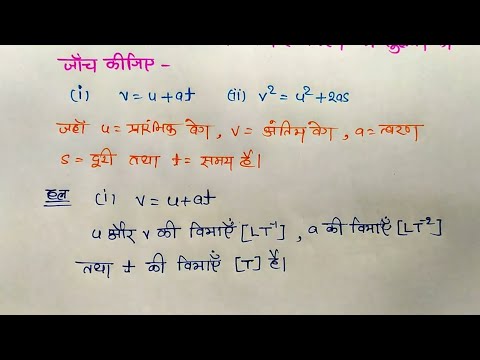 जाँच कीजिए -
(i) v = u + at (ii) v² = u² + 2as
जहाँ u = प्रारंभिक वेग, v = अंतिम वेग, a = त्वरण
s = दूरी तथा t = समय है।
हल (i) v = u + at
u और v की विमाएँ [LT⁻¹], a की विमाएँ [LT⁻²]
तथा t की विमाएँ [T] है।